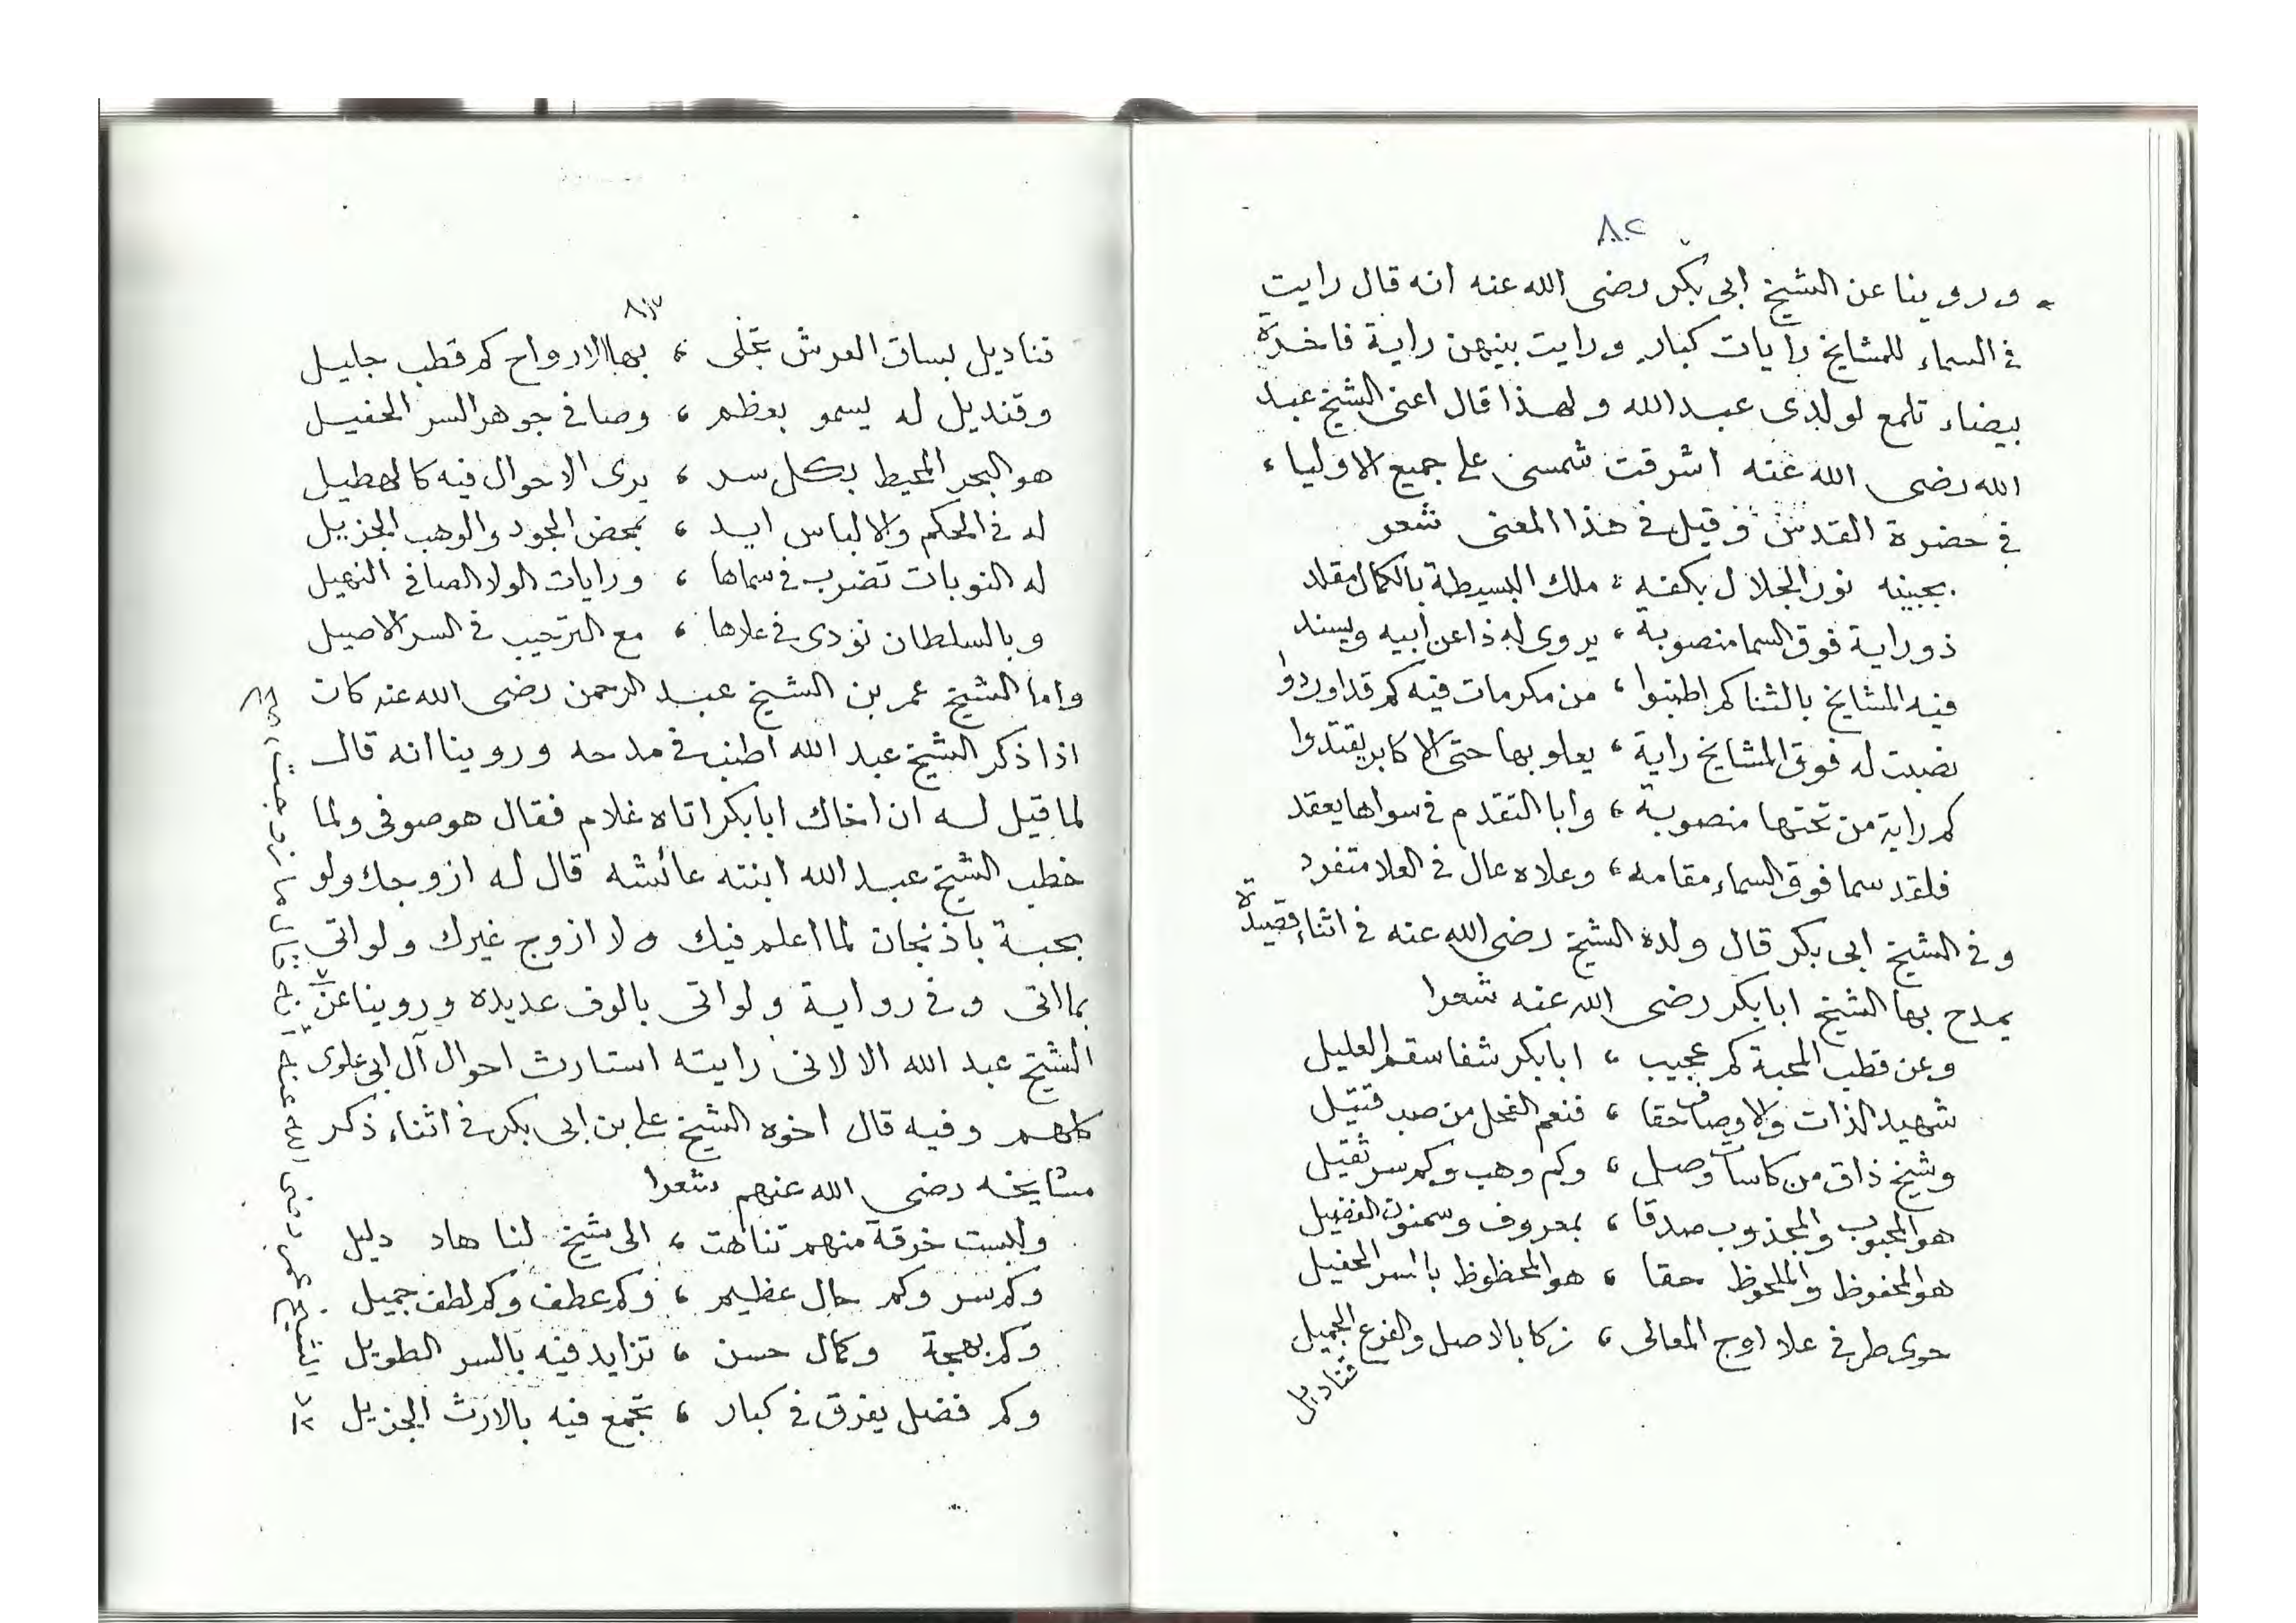 ٨٠٢
ورويناعن الشيخ ابى بكر رضى الله عنه انه قال رايت
فى السماء للمشايخ رايات كبار ورايت بينهن راية فاخرة
بيضاء تلمع لولدى عبد الله ولهذا قال اعنى الشيخ عبد
الله رضى الله عنه اشرقت شمسى على جميع الاولياء
فى حضرة القدس وقيل فى هذا المعنى شعر
بجبينه نور الجلال بكفه ، ملك البسيطة بالكمال مقلد
ذو راية فوق السما منصوبة ، يروى له ذا عن أبيه ويسند
فيه المشايخ بالثنا كم اطنبوا ، من مكرمات فيه كم قد اوردوا
نصبت له فوق المشايخ راية ، يعلو بها حتى الاكابر يقتدوا
كم راية من تحتها منصوبة ، وابا التقدم فى سواها يعقد
فلقد سما فوق السماء مقامه ، وعلاه عال فى العلا متفرد
وفى الشيخ ابى بكر قال ولده الشيخ رضى الله عنه فى اثناء قصيدة
يمدح بها الشيخ ابا بكر رضى الله عنه شعرا
وعن قطب المحبة كم عجيب ، ابا بكر شفا سقم العليل
شهيد الذات والاوصاف حقا ، فنعم الفحل من صب قتيل
وشيخ ذاق من كاسات وصل ، وكم وهب وكم سر ثقيل
هو المحبوب والمجذوب صدقا ، بمعروف وسمنون الفضيل
هو المحفوظ والملحوظ حقا ، هو المحظوظ بالسر الحفيل
حوى طرفى علا اوج المعالى ، زكا بالاصل والفرع الجميل
قناديل
٨٠٣
قناديل بساق العرش تجلى ، بها الارواح كم قطب جليل
وقنديل له يسمو بعظم ، وصافى جوهر السر الحفيل
هو البحر المحيط بكل سر ، يرى الاحوال فيه كالهطيل
له فى الحكم والالباس ايد ، بمحض الجود والوهب الجزيل
له النوبات تضرب فى سماها ، ورايات الولا الصافى النهيل
وبالسلطان نودى فى علاها ، مع الترحيب فى السر الاصيل
واما الشيخ عمر بن الشيخ عبد الرحمن رضى الله عنه كان
اذا ذكر الشيخ عبد الله اطنب فى مدحه وروينا انه قال
لما قيل له ان اخاك ابا بكر اتاه غلام فقال هو صوفى ولما
خطب الشيخ عبد الله ابنته عائشه قال له ازوجك ولو
بحبة باذنجان لما اعلم فيك ولا ازوج غيرك ولو اتى
بما اتى وفى رواية ولو اتى بالوف عديده وروينا عن
الشيخ عبد الله الا لانى رايته استارث احوال آل ابى علوى
كلهم وفيه قال اخوه الشيخ على بن ابى بكر فى اثناء ذكر
مشايخه رضى الله عنهم شعرا
ولبست خرقة منهم تناهت ، الى شيخ لنا هاد دليل
وكم سر وكم حال عظيم ، وكم عطف وكم لطف جميل
وكم بهجة وكمال حسن ، تزايد فيه بالسر الطويل
وكم فضل يفرق فى كبار ، تجمع فيه بالارث الجزيل
الشيخ عمر رضى الله عنه انه قال ما زوجت